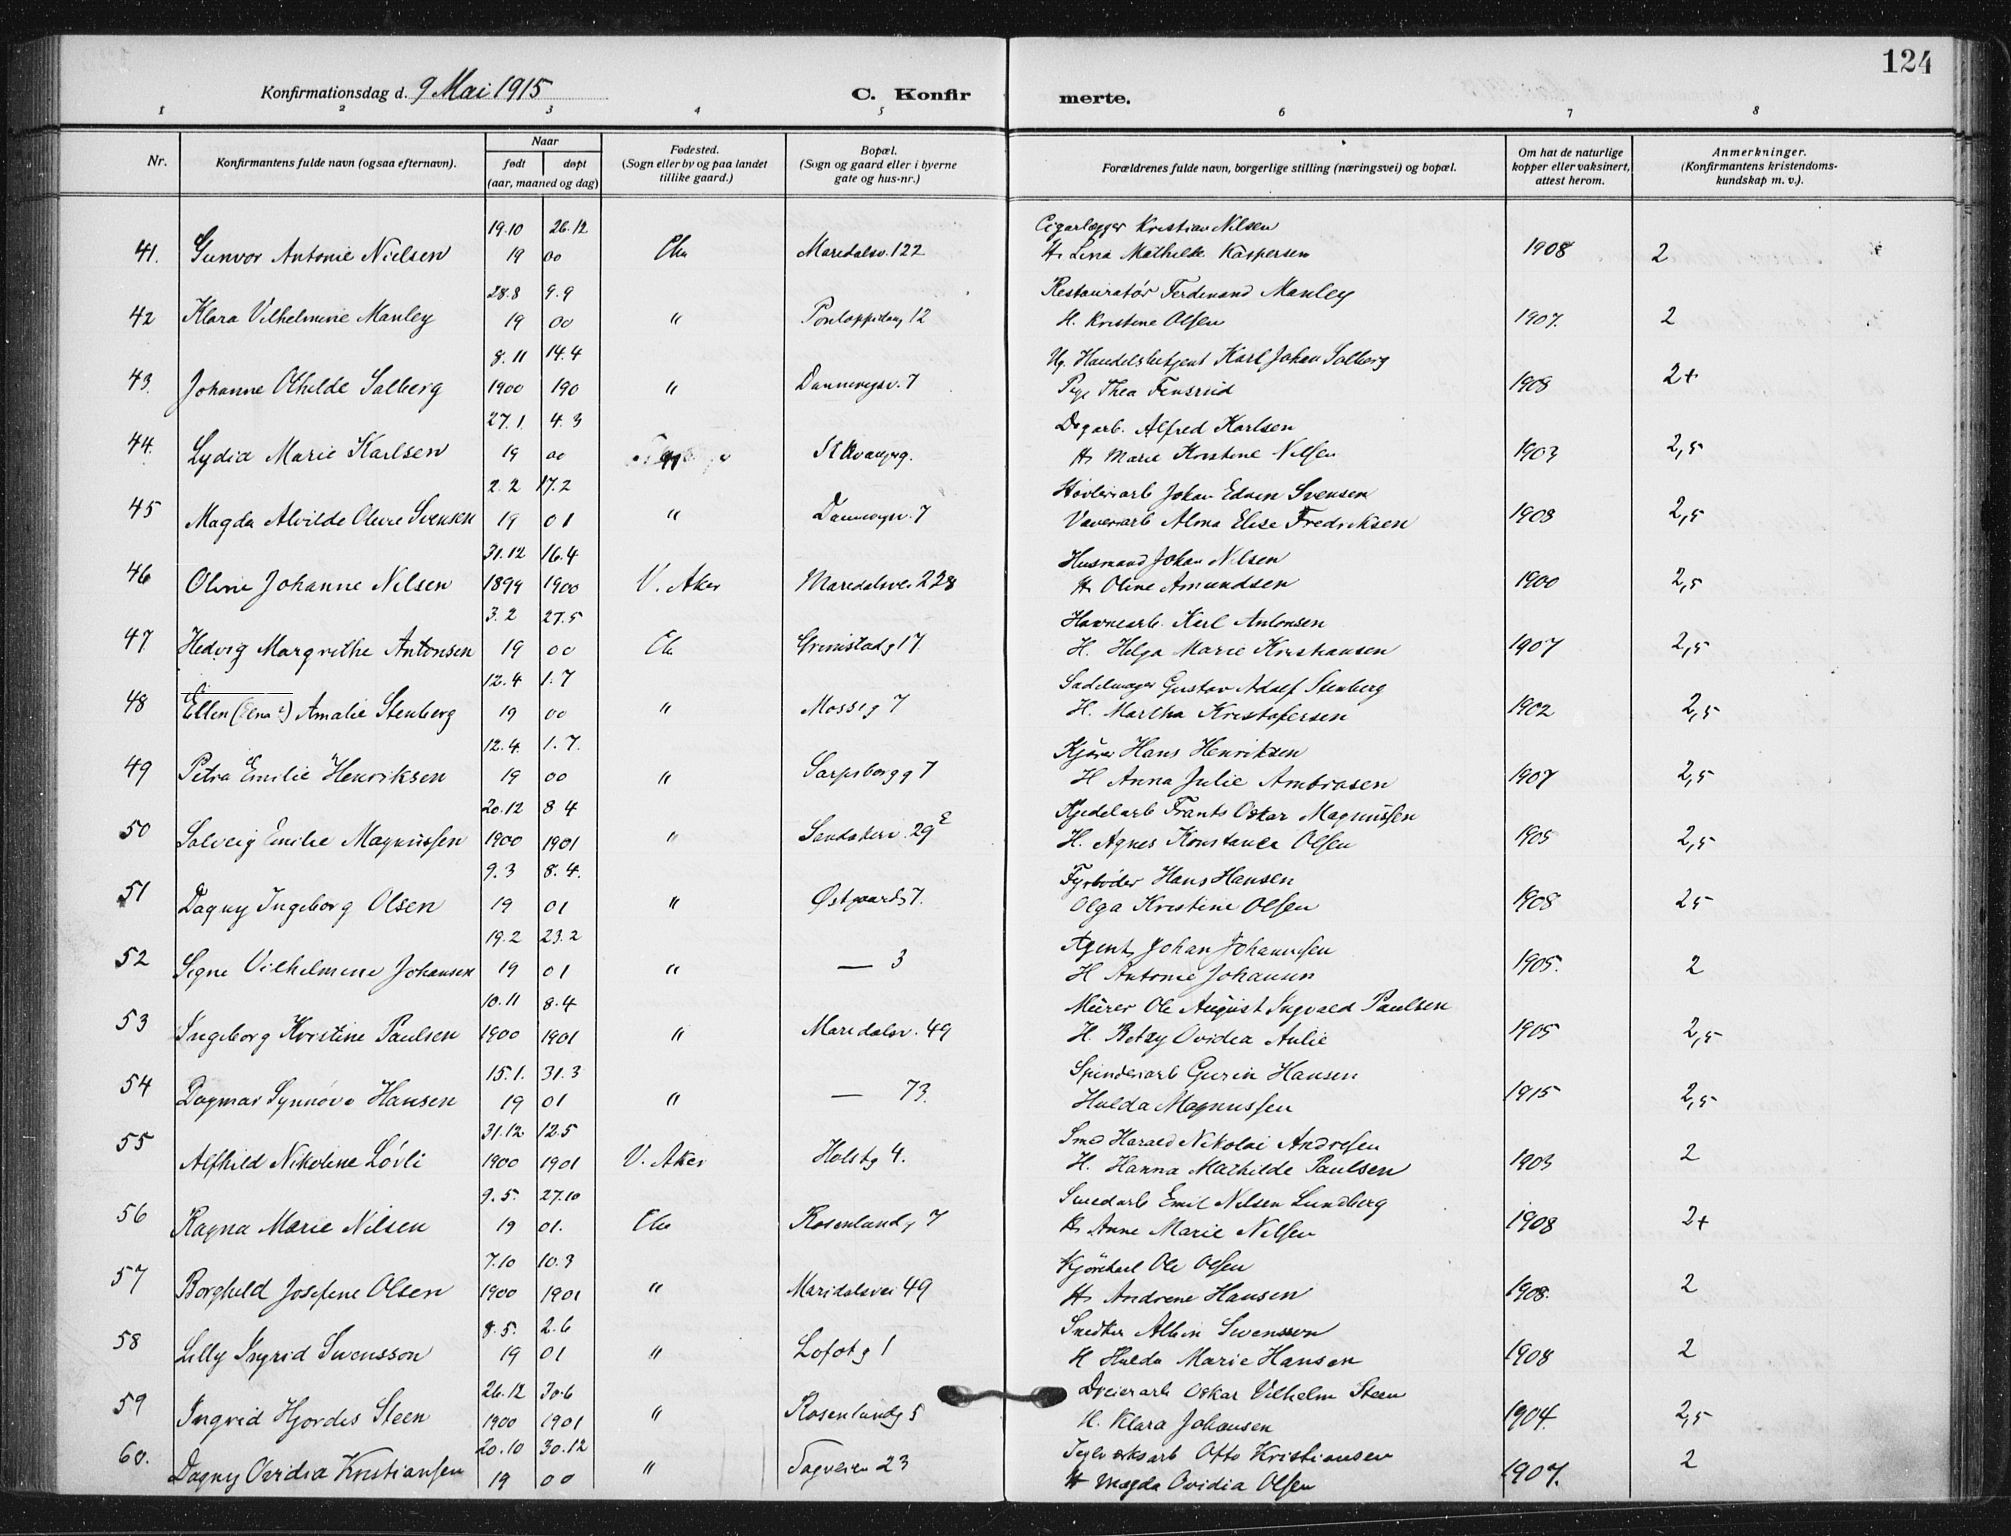 124
Konfirmationsdag d. 9 Mai 1915
C. Konfirmerte.
1 2 3 4 5 6 7 8
Nr.
Konfirmantens fulde navn (ogsaa efternavn).
Naar
født døpt
(aar, maaned og dag)
Fødested.
(Sogn eller by og paa landet
tillike gaard.)
Bopæl.
(Sogn og gaard eller i byerne
gate og hus-nr.)
Forældrenes fulde navn, borgerlige stilling (næringsvei) og bopæl.
Om hat de naturlige
kopper eller vaksinert,
attest herom.
Anmerkninger.
(Konfirmantens kristendoms-
kundskap m. v.).
19.10 26.12 Cigarlægger Kristian Nilsen
41. Gunvor Antonie Nielsen 19 00 Chr Maridalsv. 122 H. Lina Mathilde Kaspersen 1908 2
28.8 9.9 Restauratør Ferdinand Manley
42 Klara Vilhelmine Manley 19 00 " Pontoppidang 12 H. Kristine Olsen 1907. 2
8.11 14.4 Ug. Handelsbetjent Karl Johan Solberg
43. Johanne Othilde Solberg 1900 190 " Dannevigsv. 7 Pige Thea Finsrud 1908 2+
27.1. 4.3 Dagarb. Alfred Karlsen
44. Lydia Marie Karlsen 19 00 " H. Marie Kristine Nilsen 1903 2,5
2.2 17.2 Høvleriarb Johan Edvin Svensen
45 Magda Alvilde Olure Svensen 19 01 " Dannevigsv. 7 Væveriarb Alma Elise Fredriksen 1908 2,5
31.12 16.4 Husmand Johan Nilsen
46 Oline Johanne Nilsen 1899 1900 V. Aker Maridalsvei 228 H. Oline Amundsen 1900 2,5
3.2 27.5 Havnearb. Karl Antonsen
47 Hedvig Margrethe Antonsen 19 00 Chr Grimstadg 17. H. Helga Marie Kristiansen 1907 2,5
12.4 1.7 Sadelmager Gustav Adolf Stenberg
48 Ellen (Elna ?) Amalie Stenberg 19 00 " Mosseg 7 H. Martha Kristofersen 1902 2,5
12.4. 1.7. Kjører Hans Henriksen
49 Petra Emilie Henriksen 19 00 " Sarpsborgg 7 H Anna Julie Ambrosen 1907 2,5
20.12 8 4 Kjedelarb Frants Oskar Magnussen
50 Solveig Emilie Magnussen 1900 1901 " Sandakerv. 29E H. Agnes Konstance Olsen 1905 2,5
9.3 8.4. Fyrbøder Hans Hansen
51 Dagny Ingeborg Olsen 19 01 " Østgaardsg 7. Olga Kristine Olsen 1908 25
19.2 23.2 Agent Johan Johannsen
52 Signe Vilhelmine Johansen 19 01 " — 3 H Antonie Johansen 1905. 2
10.11 8.4 Murer Ole August Ingvald Paulsen
53 Ingeborg Kristine Paulsen 1900 1901 " Maridalsv. 49 H. Betzy Ovidia Aulie 1905 2,5
15.1. 31.3 Spinderiarb Gurin Hansen
54 Dagmar Synnøve Hansen 19 01 " — 73. Hulda Magnussen 1915 2,5
31.12 12.5 Smed Harald Nikolai Andresen
55 Alfhild Nikoline Løvli 1900 1901 V. Aker Holstg 4. H. Hanna Mathilde Paulsen 1903 2
9.5. 27.10 Smedarb Emil Nilsen Lundberg
56 Ragna Marie Nilsen 19 01. Chr Rosenlundg 7 H. Anne Marie Nilsen 1908 2+
7.10 10.3 Kjørekarl Ole Olsen
57 Borghild Josefine Olsen 1900 1901 " Maridalsvei 49 H. Andrine Hansen 1908. 2
8.5. 2.6 Snedker Albin Svensson
58 Lilly Ingrid Svensson 19 01 " Lofotg 1 H Hulda Marie Hansen 1908 2
26.12 30.6 Dreierarb Oskar Vilhelm Steen
59 Ingrid Hjordis Steen 1900 1901 " Rosenlundg 5 H. Klara Johansen 1904. 2,5
20.10 30.12 Teglverksarb Otto Kristiansen
60. Dagny Ovidia Kristiansen 19 00 " Fagveien 23 H Magda Ovidia Olsen 1907. 2